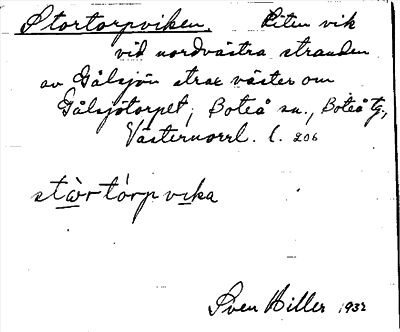 Stortorpviken. Liten vik
vid nordvästra stranden
av Gålsjön strax väster om
Gålsjötorpet, Boteå sn., Boteå tg.,
Västernorrl. l. 206
stòrtórpvika
Sven Hiller 1932